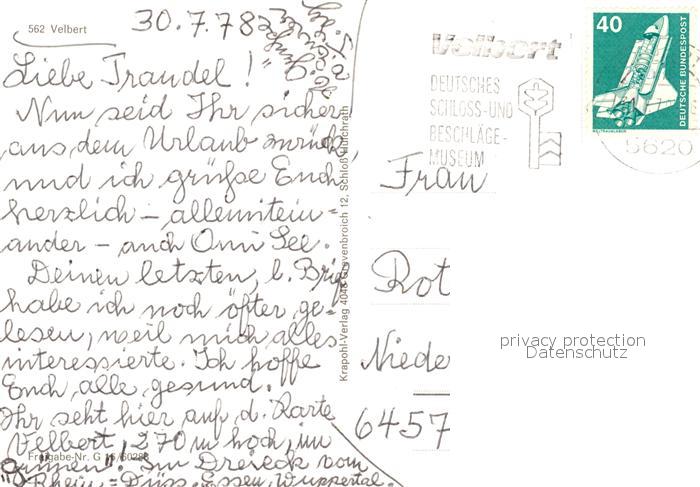 562 Velbert
30.7.78
Liebe Traudel!
Nun seid Ihr sicher
aus dem Urlaub zurück,
und ich grüße Euch
herzlich – allemitein=
ander – auch Omi See.
Deinen letzten, l. Brief
habe ich noch öfter ge=
lesen, weil mich alles
interessierte. Ich hoffe
Euch alle gesund.
Ihr seht hier auf d. Karte
Velbert, 270 m hoch, im
"Grünen"! Im Dreieck vom
Rhein = Düss. Essen, Wuppertal.
Freigabe-Nr. G
Krapohl-Verlag 4048 Grevenbroich 12, Schloß Hülchrath
Velbert
DEUTSCHES
SCHLOSS-UND
BESCHLÄGE-
MUSEUM
40
DEUTSCHE BUNDESPOST
WELTRAUMLABOR
5620
Frau
Rot
Niede
6457
privacy protection
Datenschutz